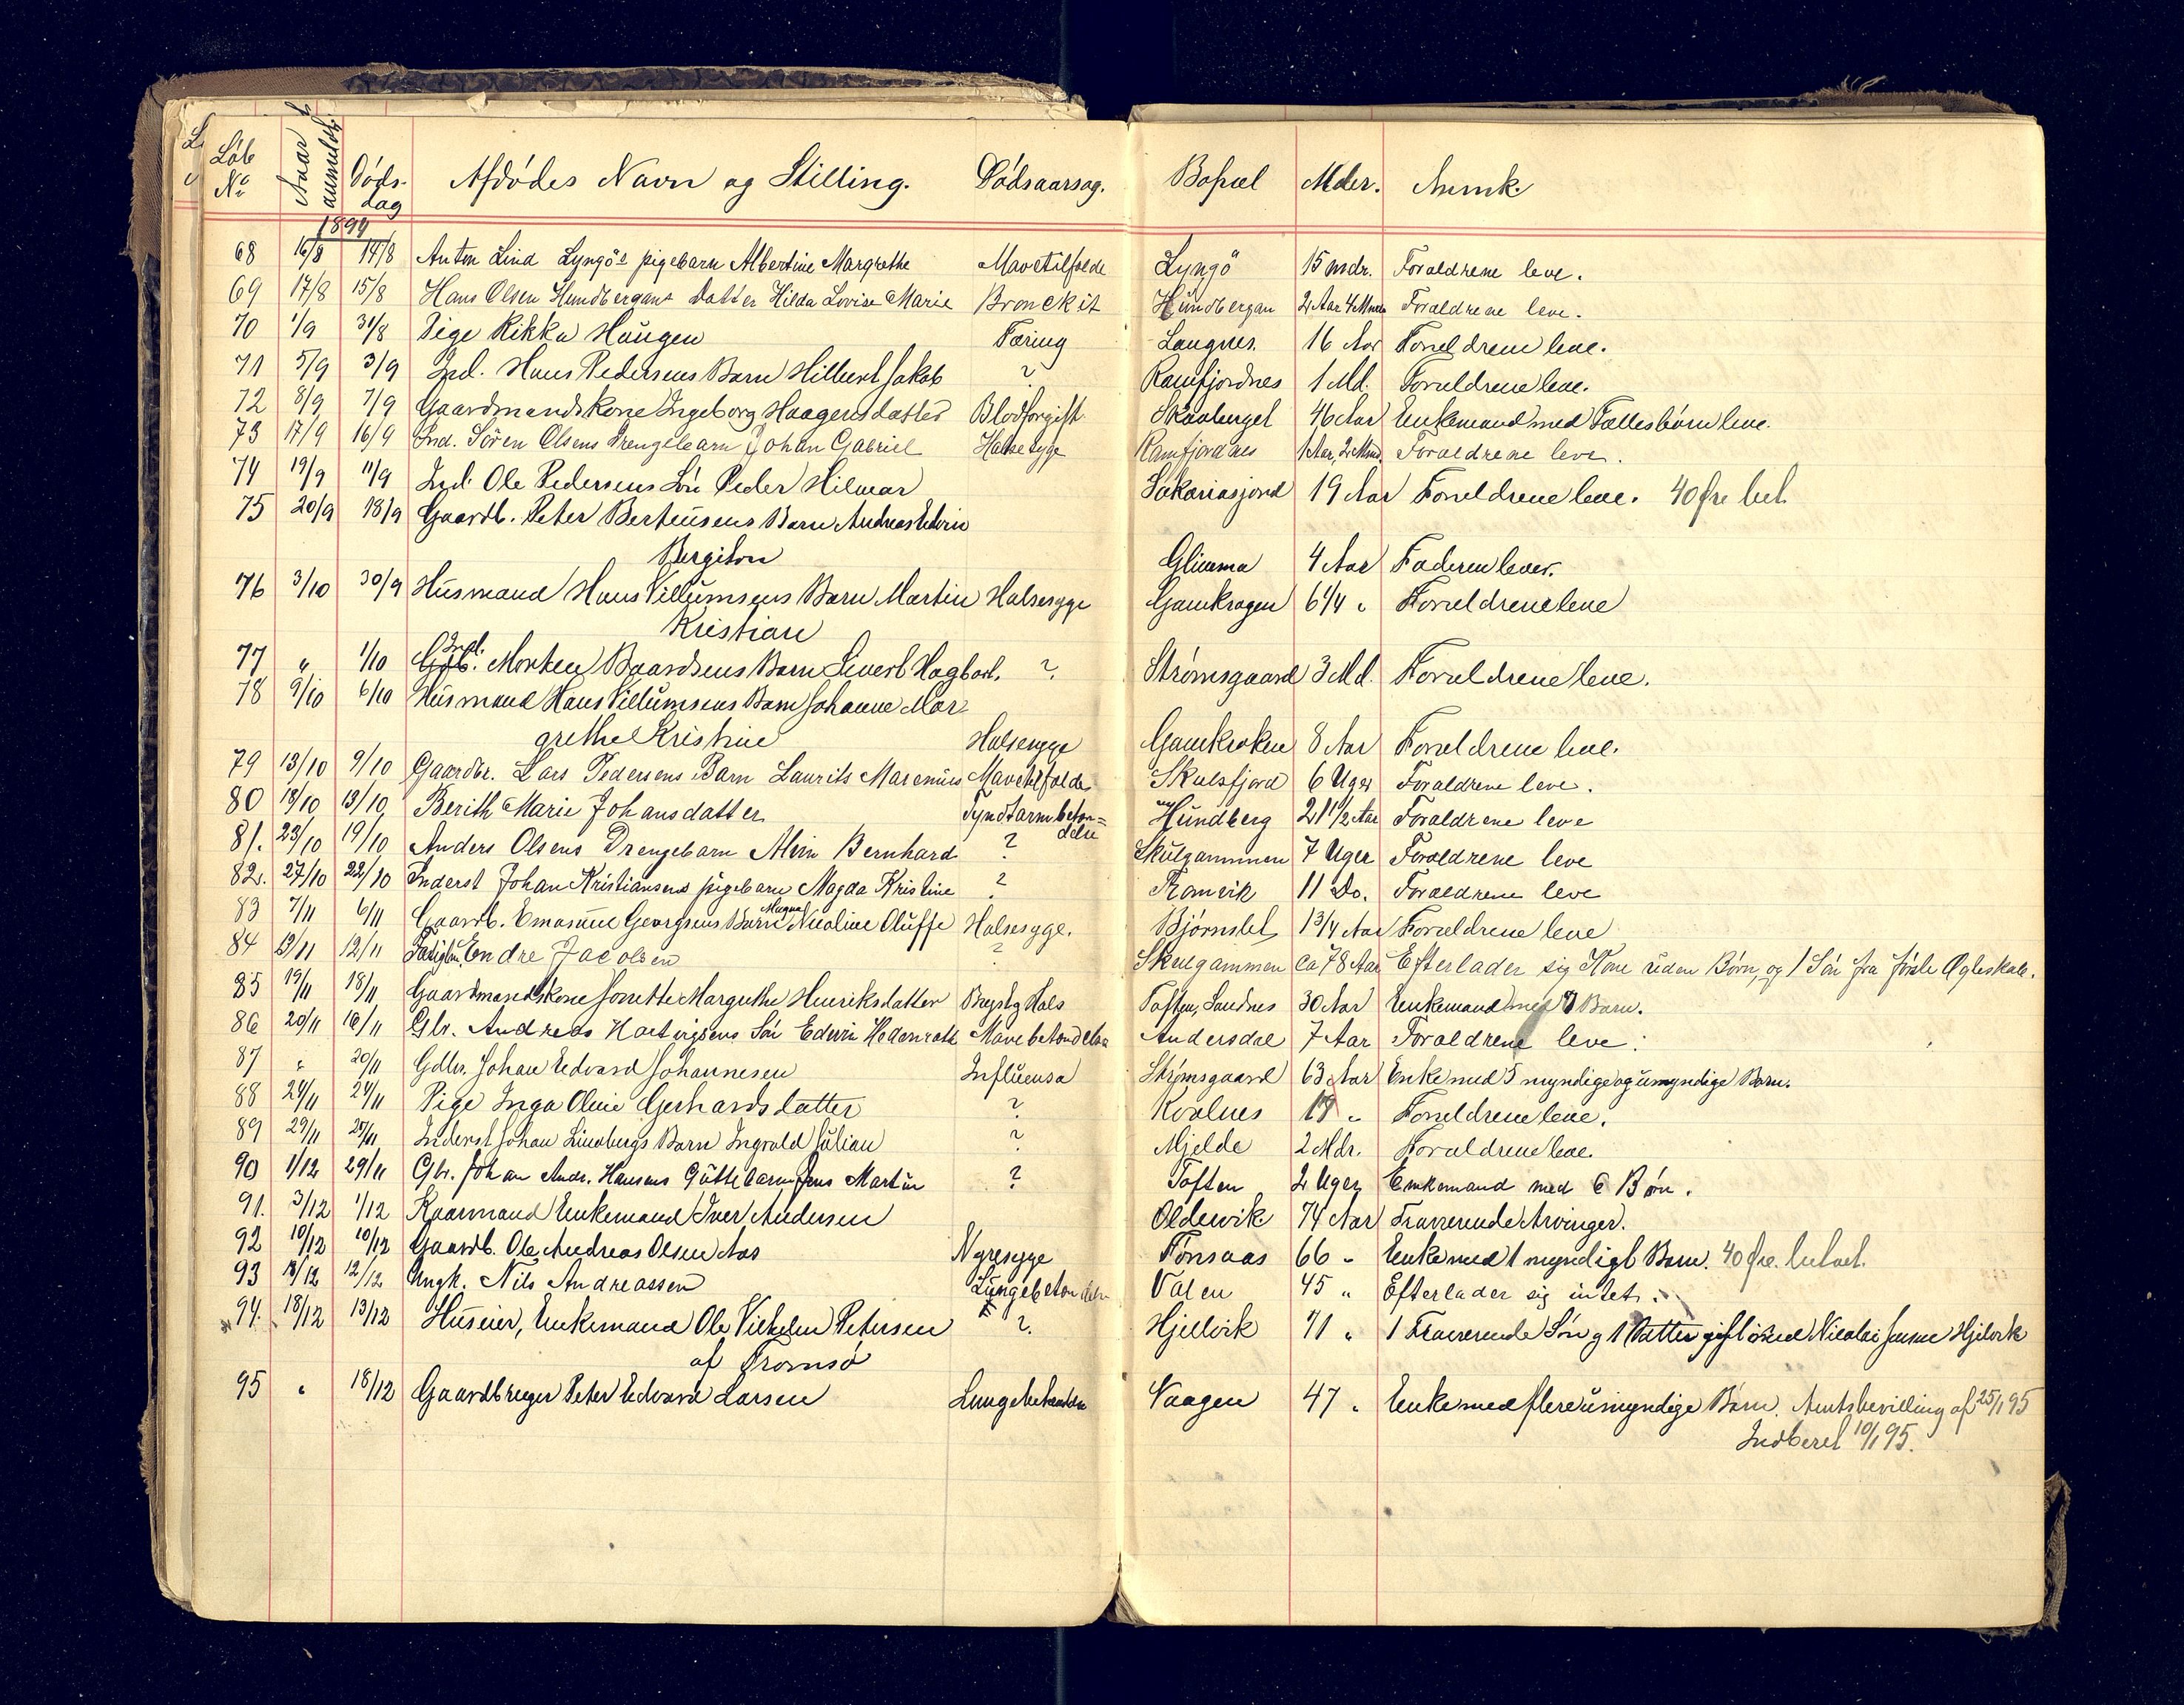 Løb No Aar & anmeldt Døds-dag Afdødes Navn og Stilling. Dødsaarsag. Bopæl Alder. Anmk.
1894
68 16/8 14/8 Anton Lind Lyngös pigebarn Albertine Margrethe Mavetilfælde Lyngö 15 mdr. Forældrene leve.
69 17/8 15/8 Hans Olsen Hundbergans Datter Hilda Lovise Marie Bronckit Hundbergan 2 Aar 4 Mdr Forældrene leve.
70 1/9 31/8 Pige Rikka Haugen Tæring Langnes. 16 Aar Forældrene leve.
71 5/9 3/9 Ind. Hans Pedersens Barn Hilbert Jakob ? Ramfjordnes 1 Md. Forældrene leve.
72 8/9 7/9 Gaardmandskone Ingeborg Haagensdatter Blodforgift. Skavberget 46 Aar Enkemand med Fællesbørn leve.
73 17/9 16/9 Ind. Sören Olsens Drengebarn Johan Gabriel Halsesyge Ramfjordnes 1 Aar, 2 Mnd. Forældrene leve.
74 19/9 11/9 Ind. Ole Pedersens Sön Peder Hilmar Sakariasjord 19 Aar Forældrene leve. 40 Øre bet.
75 20/9 18/9 Gaardb. Peter Berteusens Barn Andreas Edvin
Bergiton Glimma 4 Aar Faderen lever.
76 3/10 30/9 Husmand Hans Villumsens Barn Martin Halsesyge Gamkrogen 6 1/4 " Forældrene leve
Kristian
77 " 1/10 Ind. Morten Baardsens Barn Sivert Hagbart. ? Strømsgaard 3 Md. Forældrene leve.
78 9/10 6/10 Husmand Hans Villumsens Barn Johanne Mar
grethe Kristine Halsesyge Gamkroken 8 Aar Forældrene leve.
79 13/10 9/10 Gaardbr. Lars Pedersens Barn Laurits Marenius Mavetilfælde Skulsfjord 6 Uger Forældrene leve.
80 18/10 13/10 Berith Marie Johansdatter Tyndtarmbetæn=delse Hundberg 21 1/2 Aar Forældrene leve
81. 23/10 19/10 Anders Olsens Drengebarn Alvin Bernhard ? Skulgammen 7 Uger Forældrene leve
82. 27/10 22/10 Inderst Johan Kristiansens pigebarn Magda Kristine ? Tromvik 11 Do. Forældrene leve
83 7/11 6/11 Gaardb. Emanuel Georgsens Barn Magna Nicoline Oluffe Halsesyge. Bjørnslet 1 3/4 Aar Forældrene leve
84 13/11 12/11 Fattiglem Endre Jacobsen ? Skulgammen ca 78 Aar Efterlader sig Kone uden Børn, og 1 Sön fra første Ægteskab.
85 19/11 18/11 Gaardmandskone Jonette Margrethe Henriksdatter Bryst og Hals Toften, Sandnes 30 Aar Enkemand med Barn.
86 20/11 16/11 Gbr. Andreas Hartvigsens Sön Edvin Hedenroth Mavebetændelse Andersdal 7 Aar Forældrene leve.
87 " 20/11 Gdbr. Johan Edvard Johannesen Influensa Strømsgaard 63 Aar Enke med 5 myndige og umyndige Barn.
88 24/11 24/11 Pige Inga Oline Gerhardsdatter ? Kvalnes 18 " Forældrene leve.
89 29/11 25/11 Inderst Johan Lindbergs Barn Ingvald Julian ? Mjelde 2 Mdr. Forældrene leve.
90 1/12 29/11 Gbr. Johan Andr. Hansens Guttebarn Jens Martin ? Toften 2 Uger Enkemand med 6 Børn.
91. 3/12 1/12 Kaarmand Enkemand Iver Andersen Oldervik 74 Aar Fraværende Arvinger.
92 10/12 10/12 Gaardb. Ole Andreas Olsen Aas Nyresyge Finsaas 66 " Enke med 1 myndigt Barn. 40 Øre. betalt.
93 13/12 12/12 Ungk. Nils Andreassen Lungebetændelse Valen 45 " Efterlader sig intet.
94. 18/12 13/12 Huseier, Enkemand Ole Vilhelm Petersen ?. Hjellvik 71 " 1 Fraværende Sön og 1 Datter gift med Nicolai Jensen Hjelvik
af Tromsö
95 " 18/12 Gaardbruger Peter Edvard Larsen Lungebetændelse Vaagen 47 " Enke med flere umyndige Børn. Amtsbevilling af 25/1 95
Indberet 10/1 95.